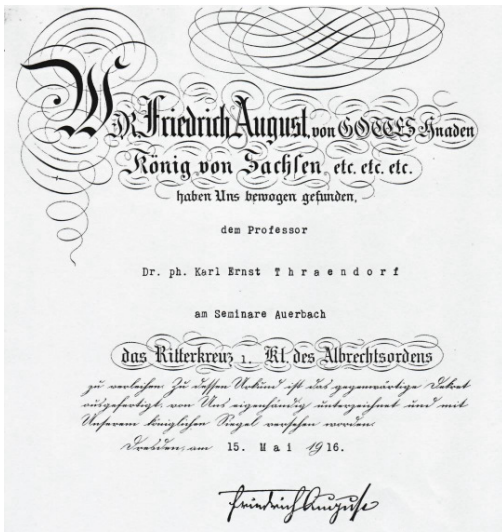 WIR Friedrich August, von GOTTES Gnaden
König von Sachsen, etc. etc. etc.
haben Uns bewogen gefunden,
dem Professor
Dr. ph. Karl Ernst Thraendorf
am Seminare Auerbach
das Ritterkreuz 1. Kl. des Albrechtsordens
zu verleihen. Zu dessen Urkund ist das gegenwärtige Dekret
ausgefertigt, von Uns eigenhändig unterzeichnet und mit
Unserem königlichen Siegel versehen worden.
Dresden, am 15. Mai 1916.
Friedrich August